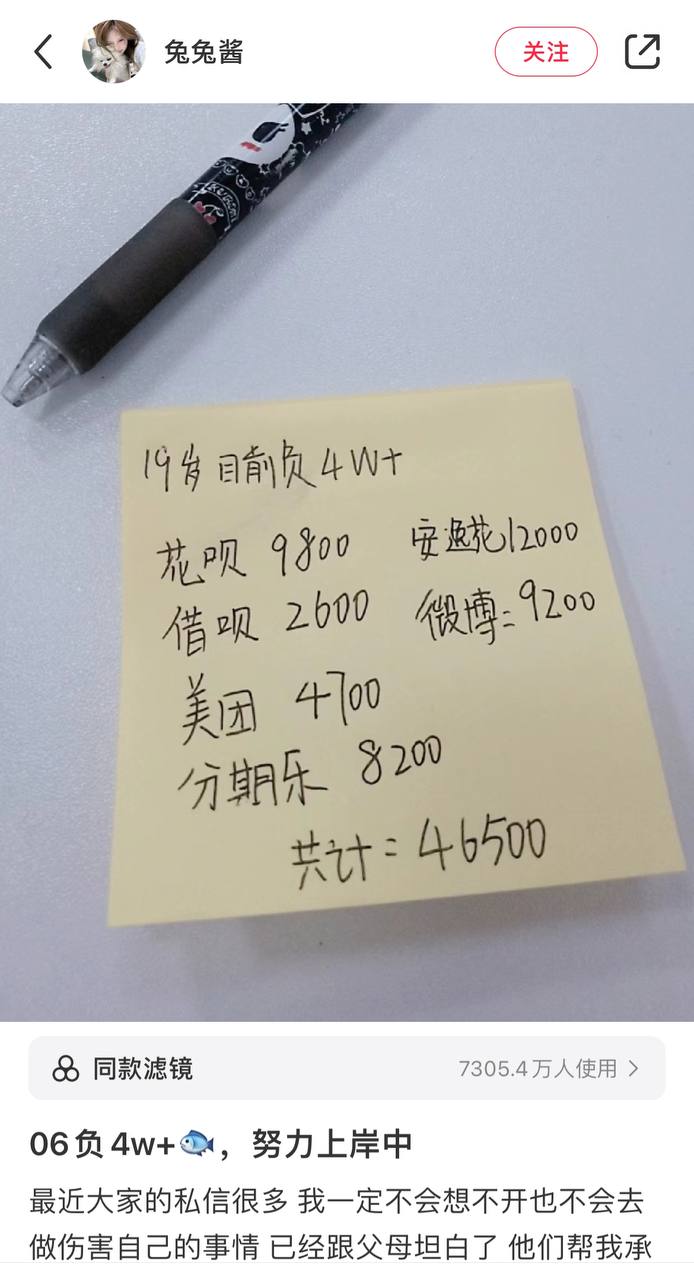 兔兔酱
关注
19岁 目前负4W+
花呗 9800 安逸花12000
借呗 2600 微博:9200
美团 4700
分期乐 8200
共计=46500
同款滤镜
7305.4万人使用
06负4w+🐟，努力上岸中
最近大家的私信很多 我一定不会想不开也不会去
做伤害自己的事情 已经跟父母坦白了 他们帮我承